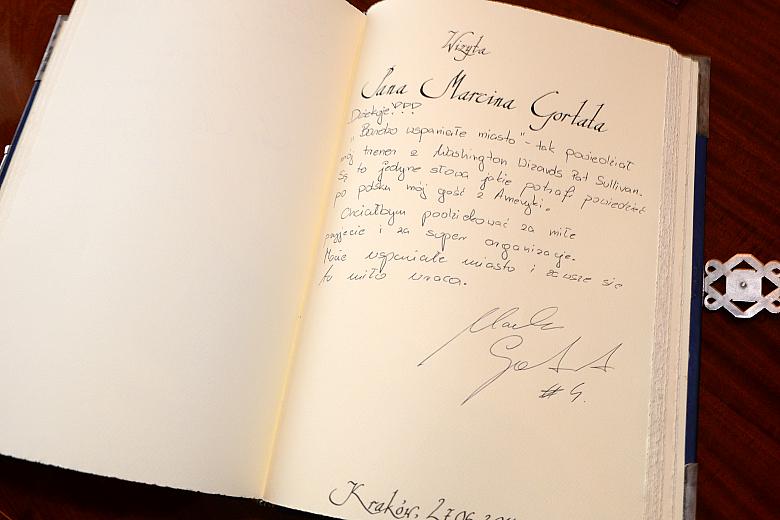 Wizyta
Pana Marcina Gortata
Dziękuję!!!
"Bardzo wspaniałe miasto" - tak powiedział
mój trener z Washington Wizards Pat Sullivan.
Są to jedyne słowa jakie potrafi powiedzieć
po polsku mój gość z Ameryki.
Chciałbym podziękować za miłe
przyjęcie i za super organizację.
Macie wspaniałe miasto i zawsze się
tu miło wraca.
#4.
Kraków, 27.06.